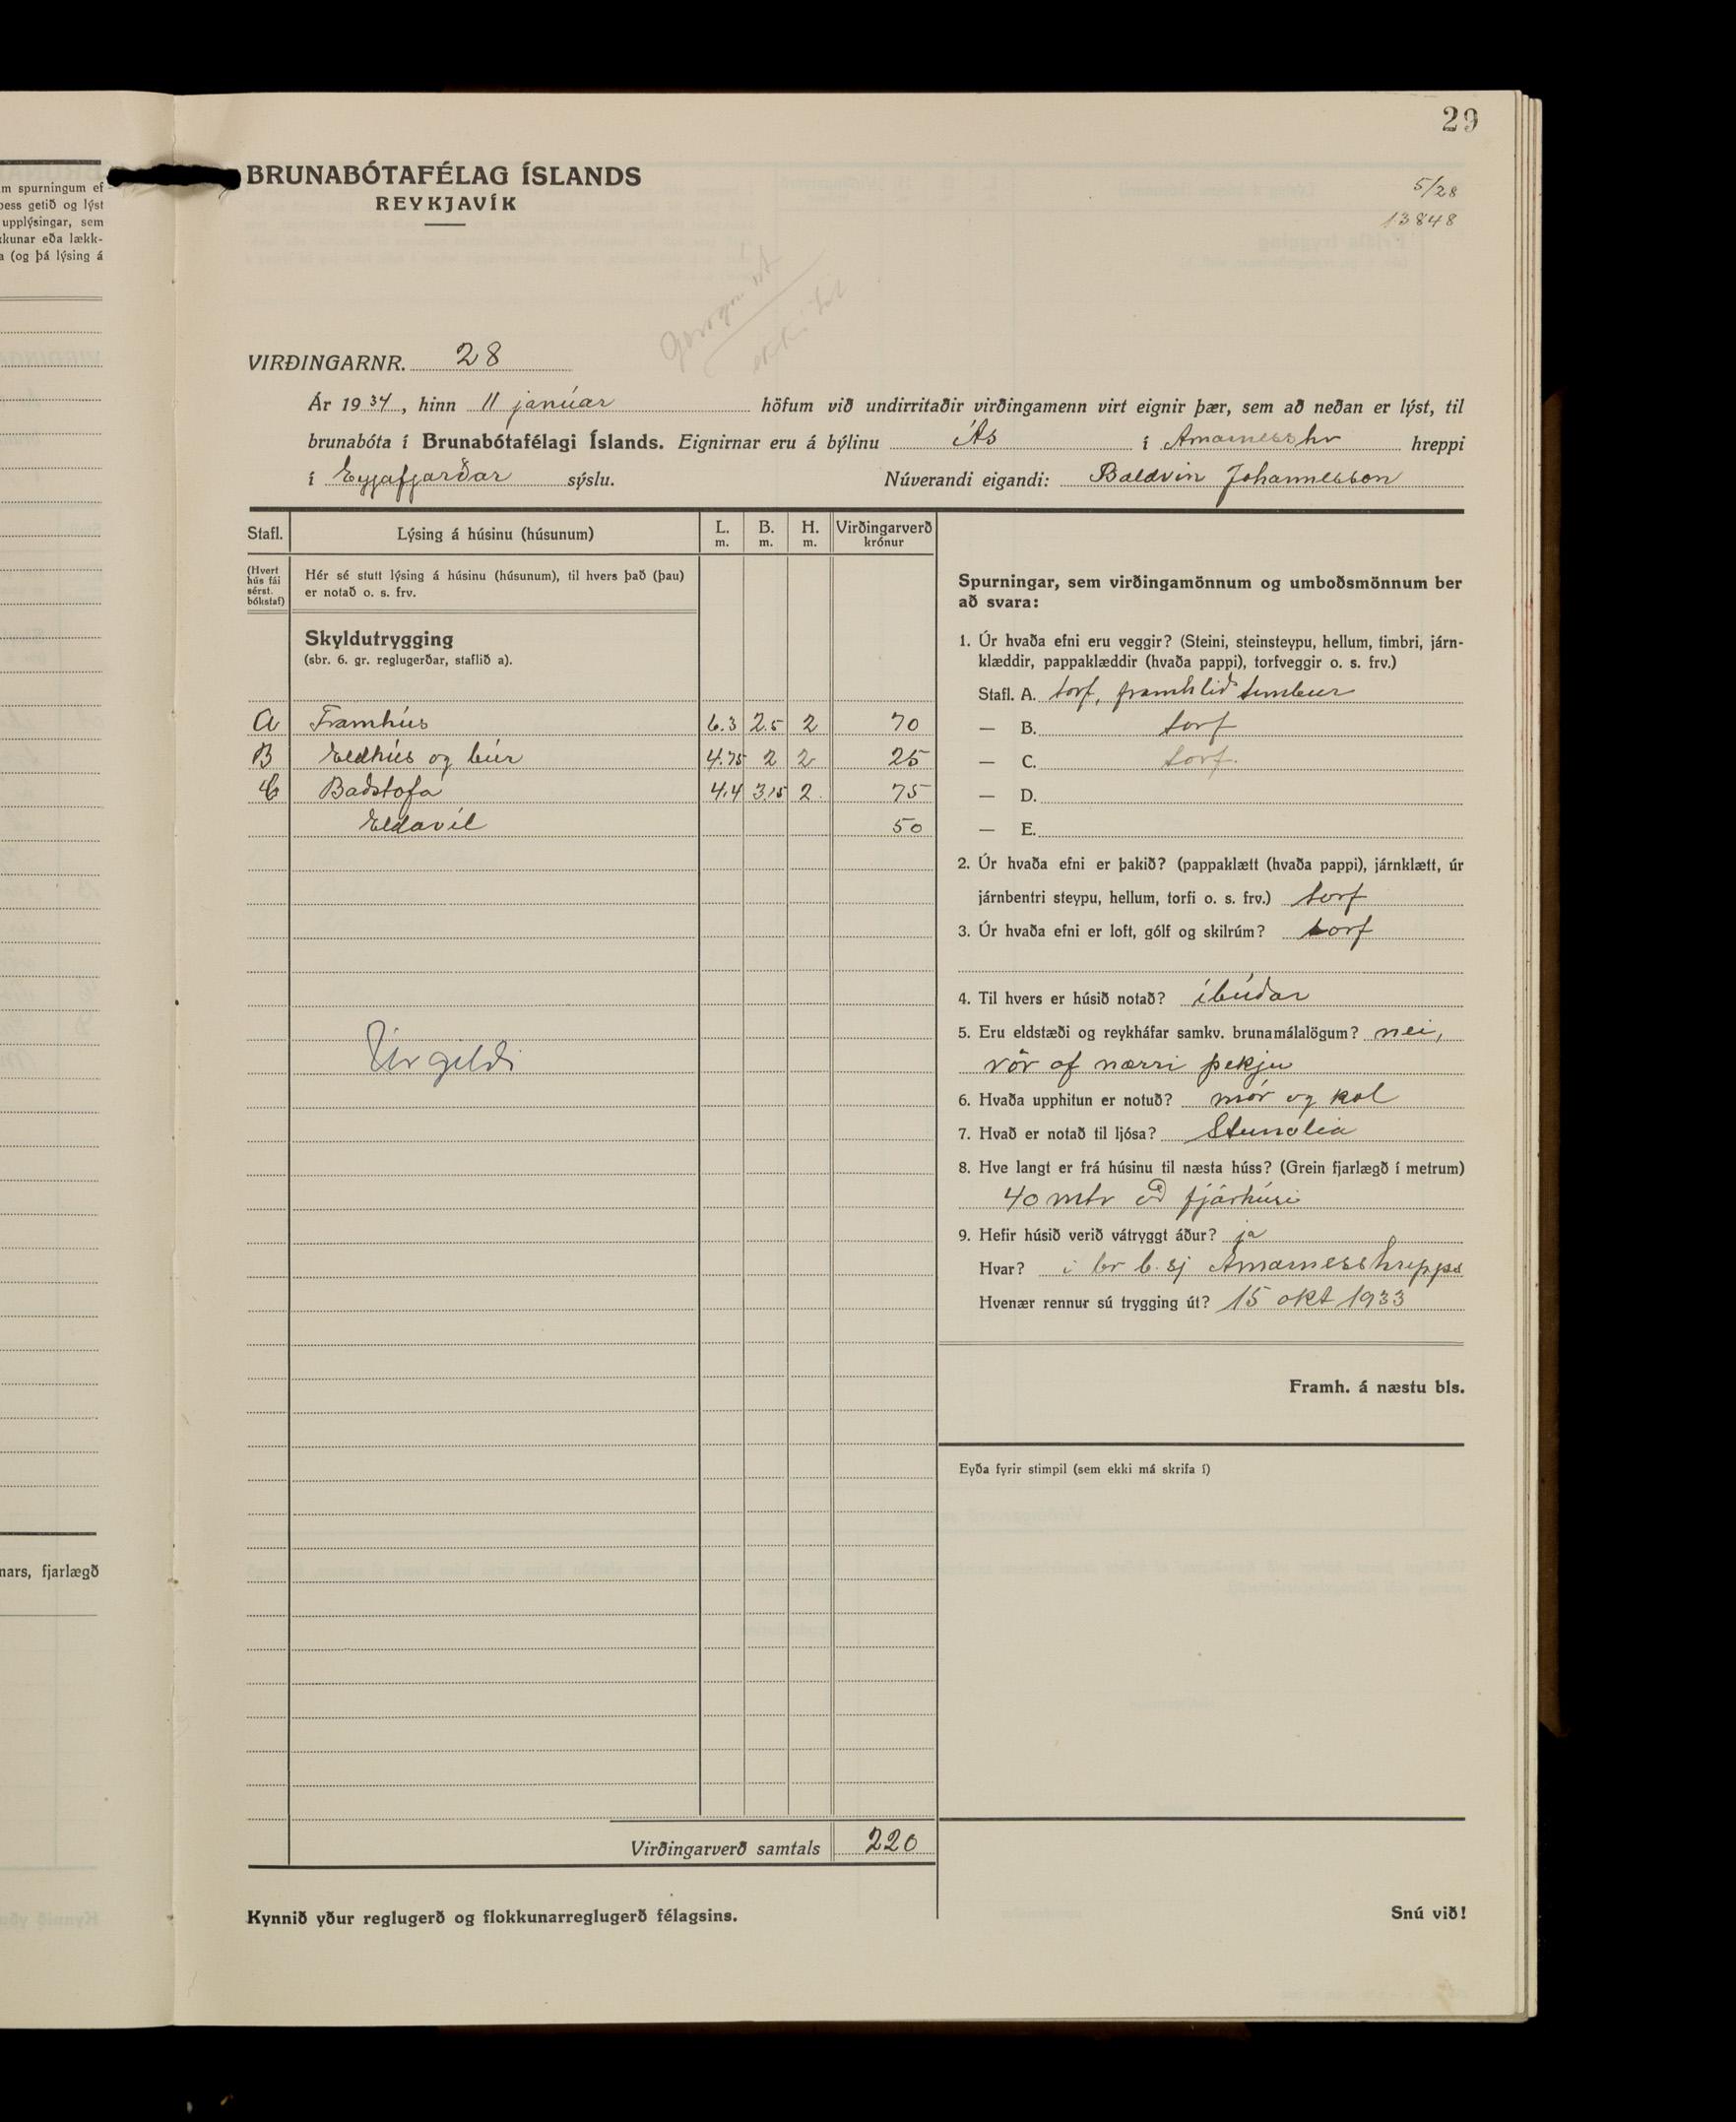 29
m spurningum ef
þess getið og lýst
upplýsingar, sem
kkunar eða lækk-
a (og þá lýsing á
nars, fjarlægð
BRUNABÓTAFÉLAG ÍSLANDS
REYKJAVÍK
5/28
13848
ekki til
VIRÐINGARNR. 28
Ár 1934, hinn 11 janúar höfum við undirritaðir virðingamenn virt eignir þær, sem að neðan er lýst, til
brunabóta í Brunabótafélagi Íslands. Eignirnar eru á býlinu Ás í Arnarnesshr hreppi
í Eyjafjarðar sýslu. Núverandi eigandi: Baldvin Johannesson
Stafl. Lýsing á húsinu (húsunum) L. m. B. m. H. m. Virðingarverð krónur
(Hvert hús fái sérst. bókstaf)
Hér sé stutt lýsing á húsinu (húsunum), til hvers það (þau)
er notað o. s. frv.
Skyldutrygging
(sbr. 6. gr. reglugerðar, staflið a).
A Framhús 6.3 2.5 2 70
B Eldhús og búr 4.75 2 2 25
C Baðstofa 4.4 3.15 2 75
Eldavél 50
Úr gildi
Virðingarverð samtals 220
Kynnið yður reglugerð og flokkunarreglugerð félagsins.
Spurningar, sem virðingamönnum og umboðsmönnum ber
að svara:
1. Úr hvaða efni eru veggir? (Steini, steinsteypu, hellum, timbri, járn-
klæddir, pappaklæddir (hvaða pappi), torfveggir o. s. frv.)
Stafl. A. torf, framhlið timbur
— B. torf
— C. torf.
— D.
— E.
2. Úr hvaða efni er þakið? (pappaklætt (hvaða pappi), járnklætt, úr
járnbentri steypu, hellum, torfi o. s. frv.) torf
3. Úr hvaða efni er loft, gólf og skilrúm? torf
4. Til hvers er húsið notað? íbúðar
5. Eru eldstæði og reykháfar samkv. brunamálalögum? nei,
rör of nærri þekju
6. Hvaða upphitun er notuð? mór og kol
7. Hvað er notað til ljósa? Steinolía
8. Hve langt er frá húsinu til næsta húss? (Grein fjarlægð í metrum)
40 mtr að fjárhúsi
9. Hefir húsið verið vátryggt áður? ja
Hvar? i br b. sj Arnarnesshrepps
Hvenær rennur sú trygging út? 15 okt 1933
Framh. á næstu bls.
Eyða fyrir stimpil (sem ekki má skrifa í)
Snú við!